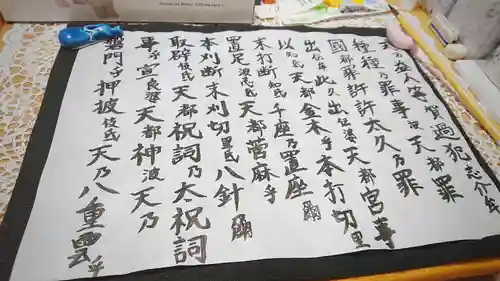 天乃益人等賀過犯志介牟
種種乃罪事波天都罪
國都罪許許太久乃罪
出伝牟此久出伝波天都宮事
以知氐天都金木乎本打切里
末打断知氐千座乃置座爾
置足波志氐天都菅麻乎
本刈断末刈切里氐八針爾
取辟伎氐天都祝詞乃太祝詞
事乎宣良波天都神波天乃
磐門乎押披伎氐天乃八重雲乎